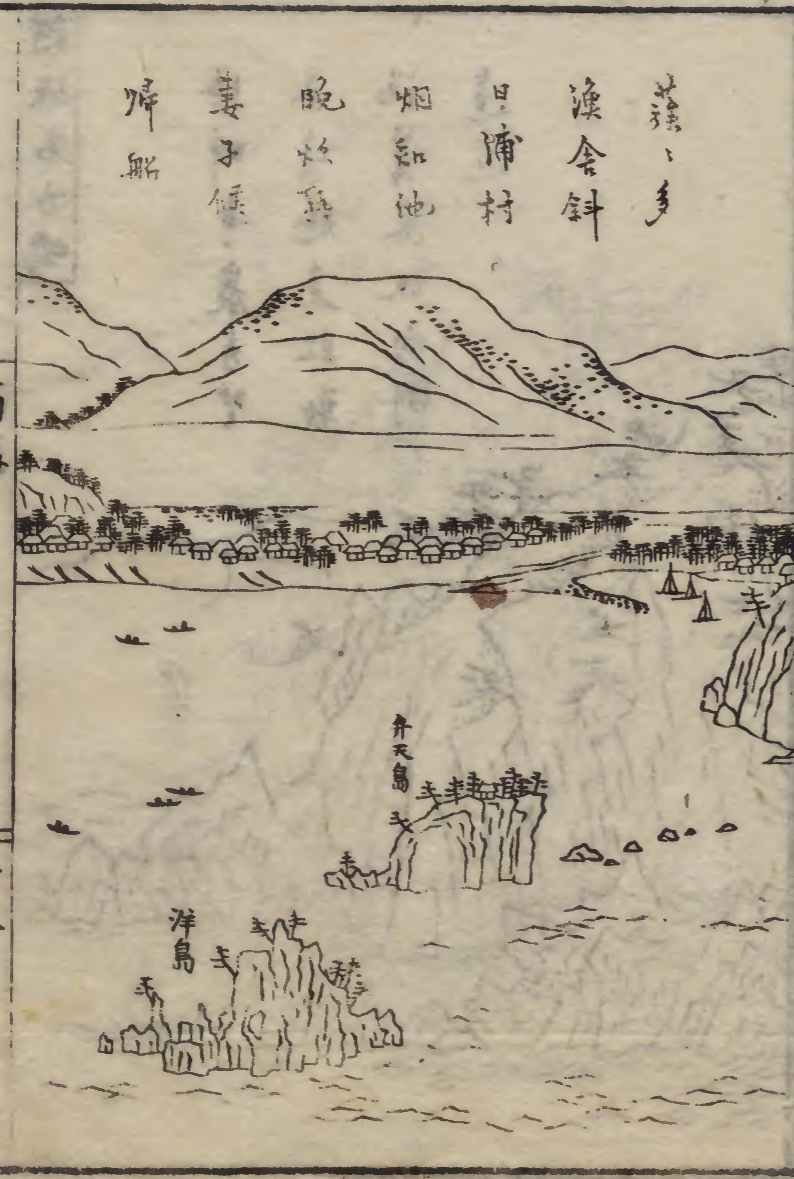 ゝ多
漁舎斜
日浦村
烟知他
晩炊熟
妻子候
歸船
弁天島
洋島